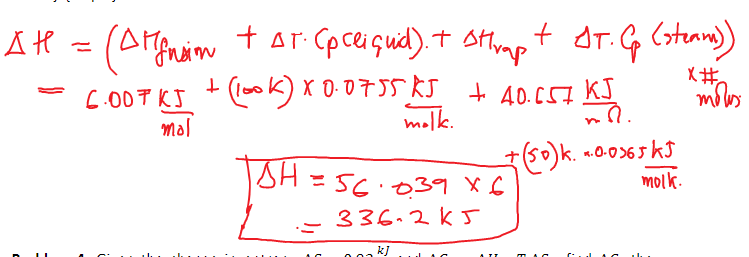 ΔH = (ΔHfusion + ΔT. Cp(liquid). + ΔHvap + ΔT. Cp (steam)) x # moles
= 6.007 KJ/mol + (100K) x 0.0755 KJ/molk. + 40.657 KJ/m
+ (50)k. x 0.0365 kJ/molk.
ΔH = 56.039 x 6
= 336.2 kJ
kJ